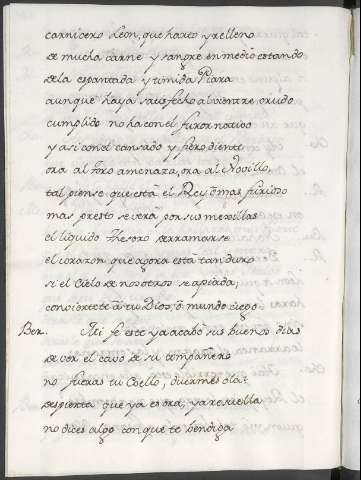 carnicero Leon, que harto y relleno
de mucha carne y sangre en medio estando
dela espantada y timida Piara
aunque haya satisfecho al vientre crudo
cumplido no ha con el furor natibo
y asi con el cansado y fiero diente
ora al Toro amenaza, ora al Novillo,
tal piense que está el Rey ò mas furioso
mas presto se verá por sus mexillas
el liquido thesoro derramarse
el corazon que agora está tan duro
si el Cielo de nosotros se apiada;
conviertete á tu Dios, ò mundo ciego.
Ber. Asi fe este ya acabó sus buenos dias
de ver el cavo de su compañero
no fueras tu Coello, duermes ola?
despierta que ya es ora, ya resuella
no dices algo con que te bendiga